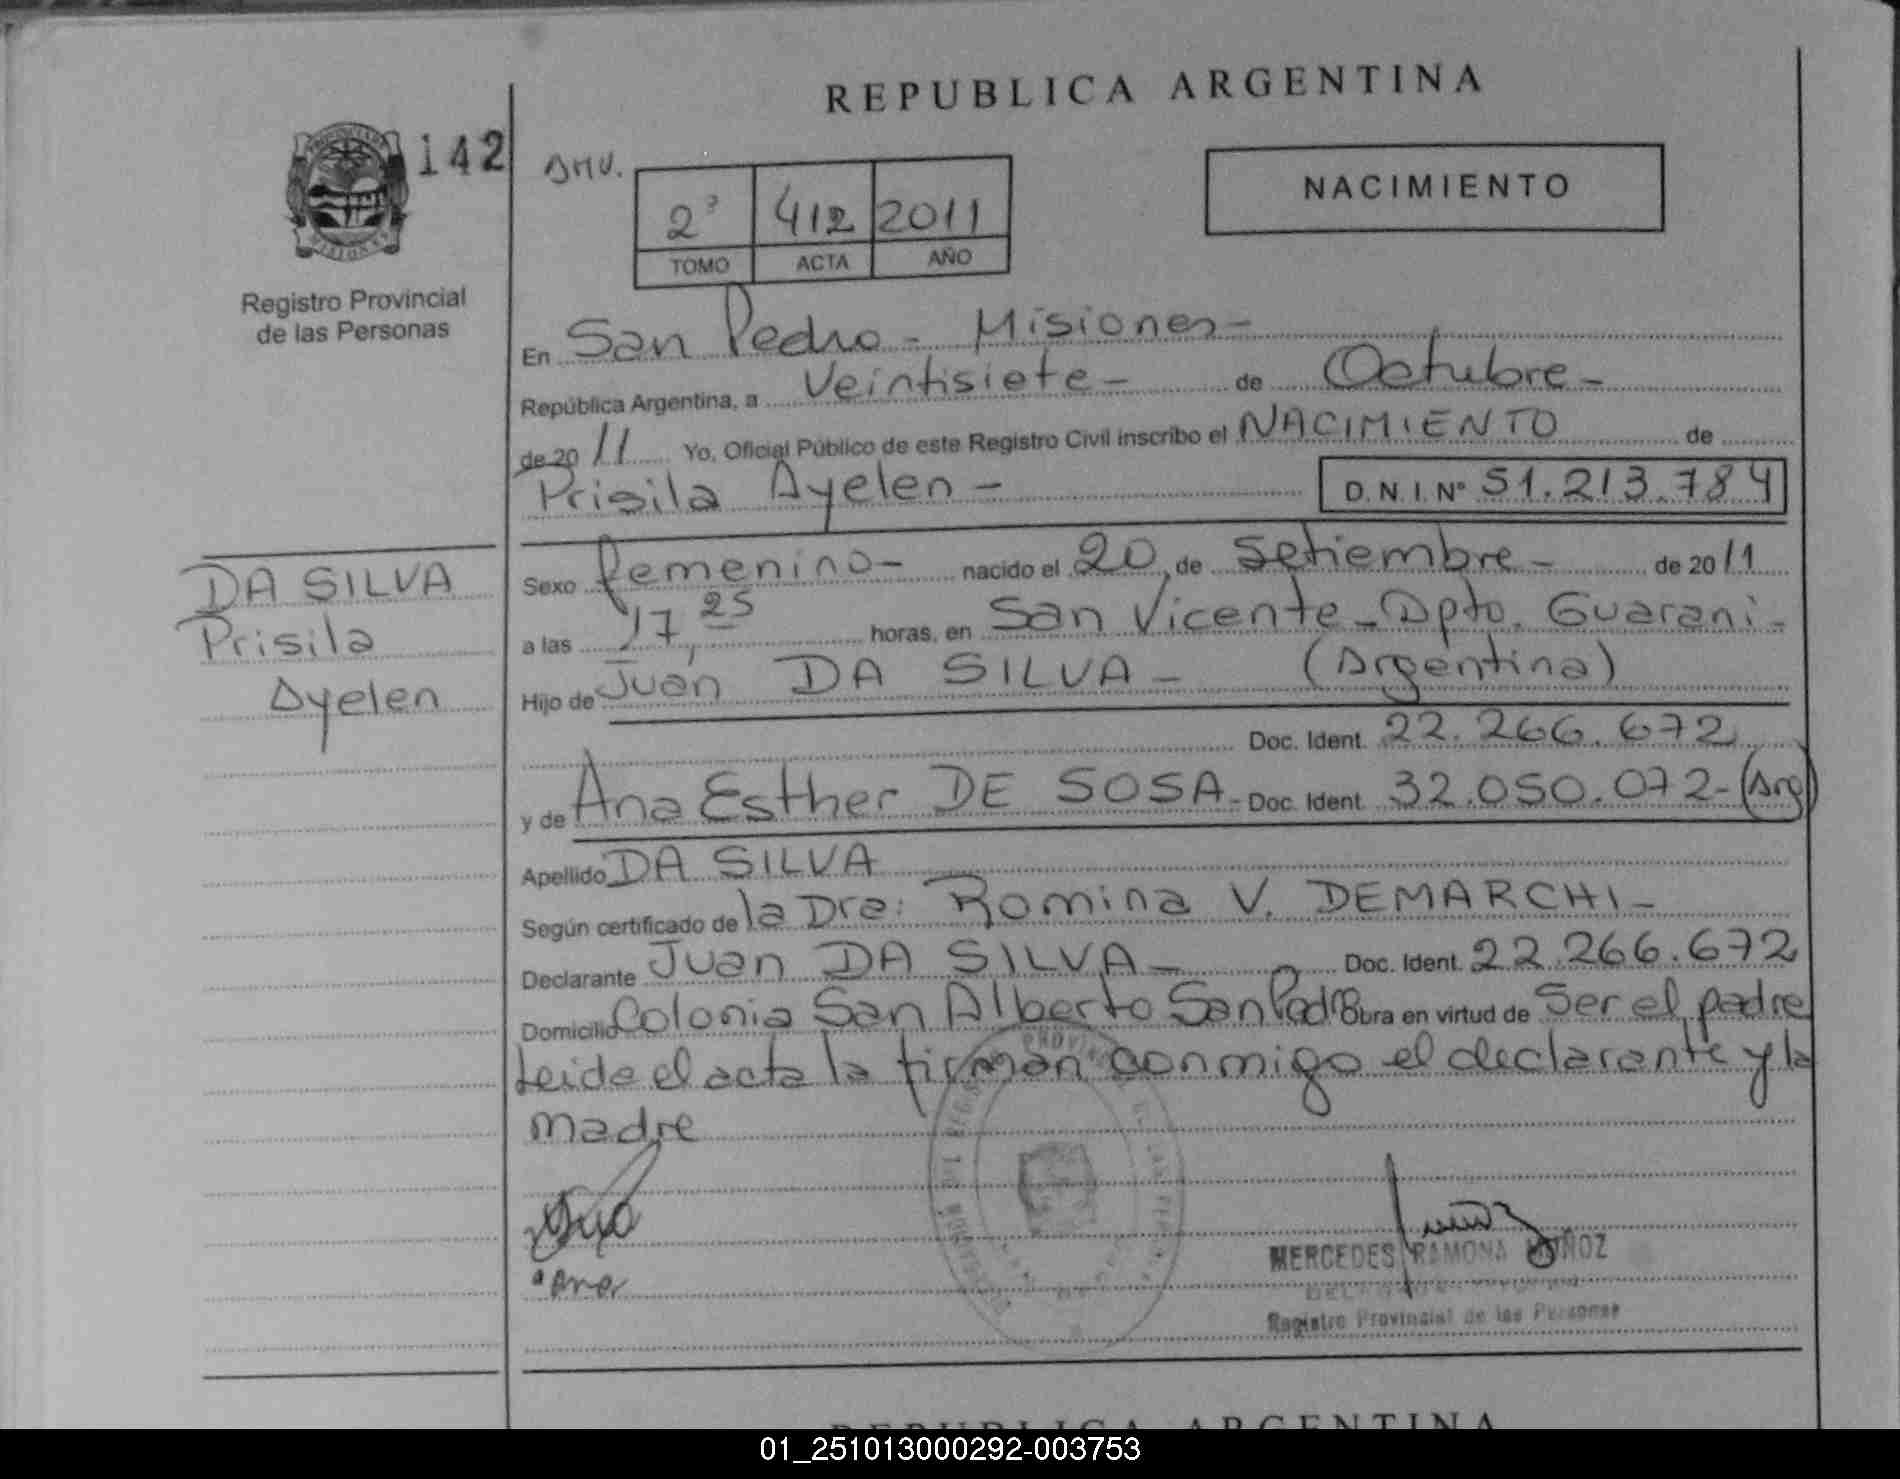 REPUBLICA ARGENTINA
142
Registro Provincial
de las Personas
2º 412 2011
TOMO ACTA AÑO
NACIMIENTO
En San Pedro - Misiones -
República Argentina, a Veintisiete - de Octubre -
de 20 11 Yo, Oficial Público de este Registro Civil inscribo el NACIMIENTO de
Prisila Ayelen - D.N.I. Nº 51.213.784
DA SILVA
Prisila
Ayelen
Sexo femenino - nacido el 20 de Setiembre - de 20 11
a las 17,25 horas, en San Vicente - Dpto. Guarani -
Hijo de Juan DA SILVA - (Argentina)
Doc. Ident. 22.266.672
y de Ana Esther DE SOSA - Doc. Ident. 32.050.072 - (Arg)
Apellido DA SILVA
Según certificado de la Dra: Romina V. DEMARCHI -
Declarante Juan DA SILVA - Doc. Ident. 22.266.672
Domicilio Colonia San Alberto San Pedro Obra en virtud de Ser el padre
Leida el acta la firman conmigo el declarante y la
madre
MERCEDES RAMONA MUÑOZ
Registro Provincial de las Personas
REPUBLICA ARGENTINA
01_251013000292-003753